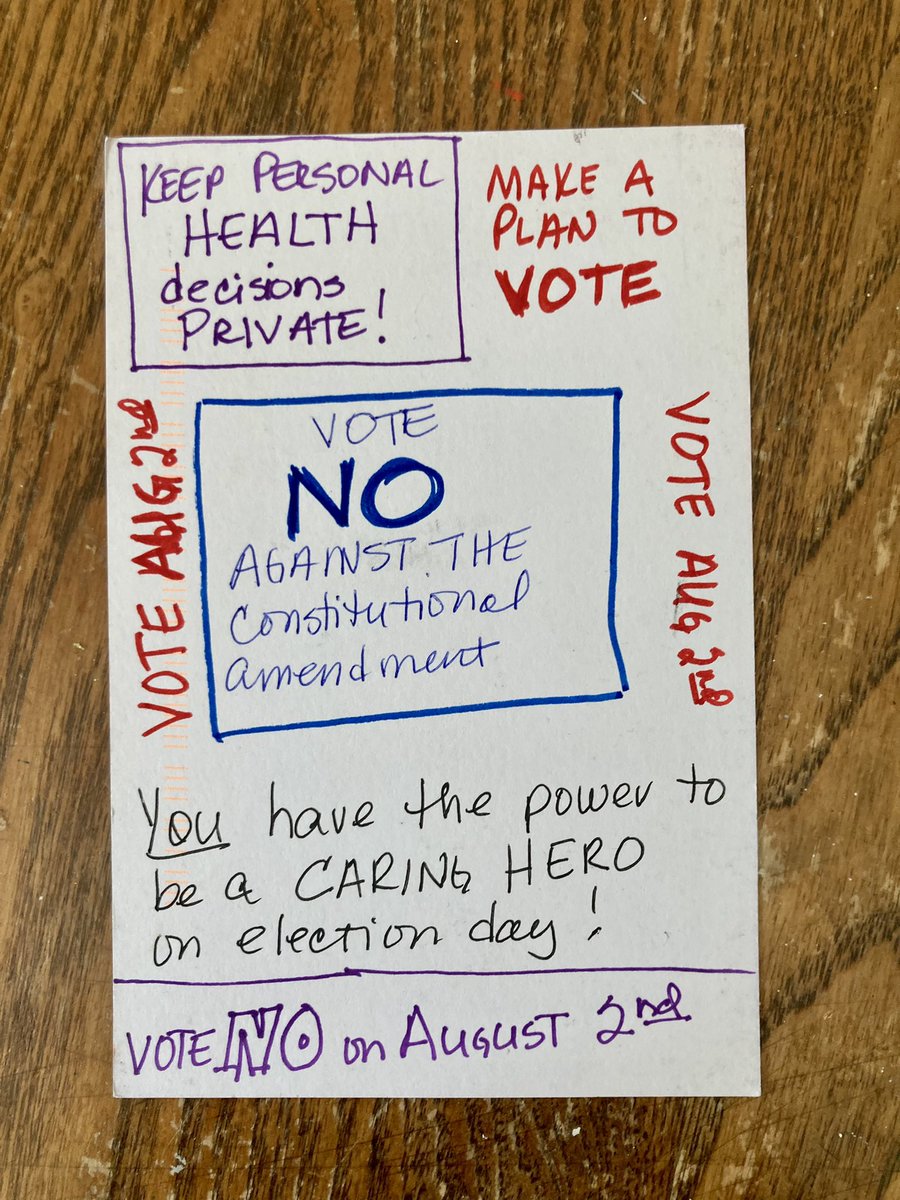 KEEP PERSONAL
HEALTH
decisions
PRIVATE!
MAKE A
PLAN TO
VOTE
VOTE AUG 2nd
VOTE
NO
AGAINST THE
Constitutional
amendment
VOTE AUG 2nd
You have the power to
be a CARING HERO
on election day!
VOTE NO on AUGUST 2nd